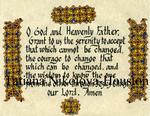 O God and Heavenly Father,
Grant to us the serenity to accept
that which cannot be changed,
the courage to change that
which can be changed, and
the wisdom to know the one
our Lord. Amen
Tatiana Nikolova-Houston